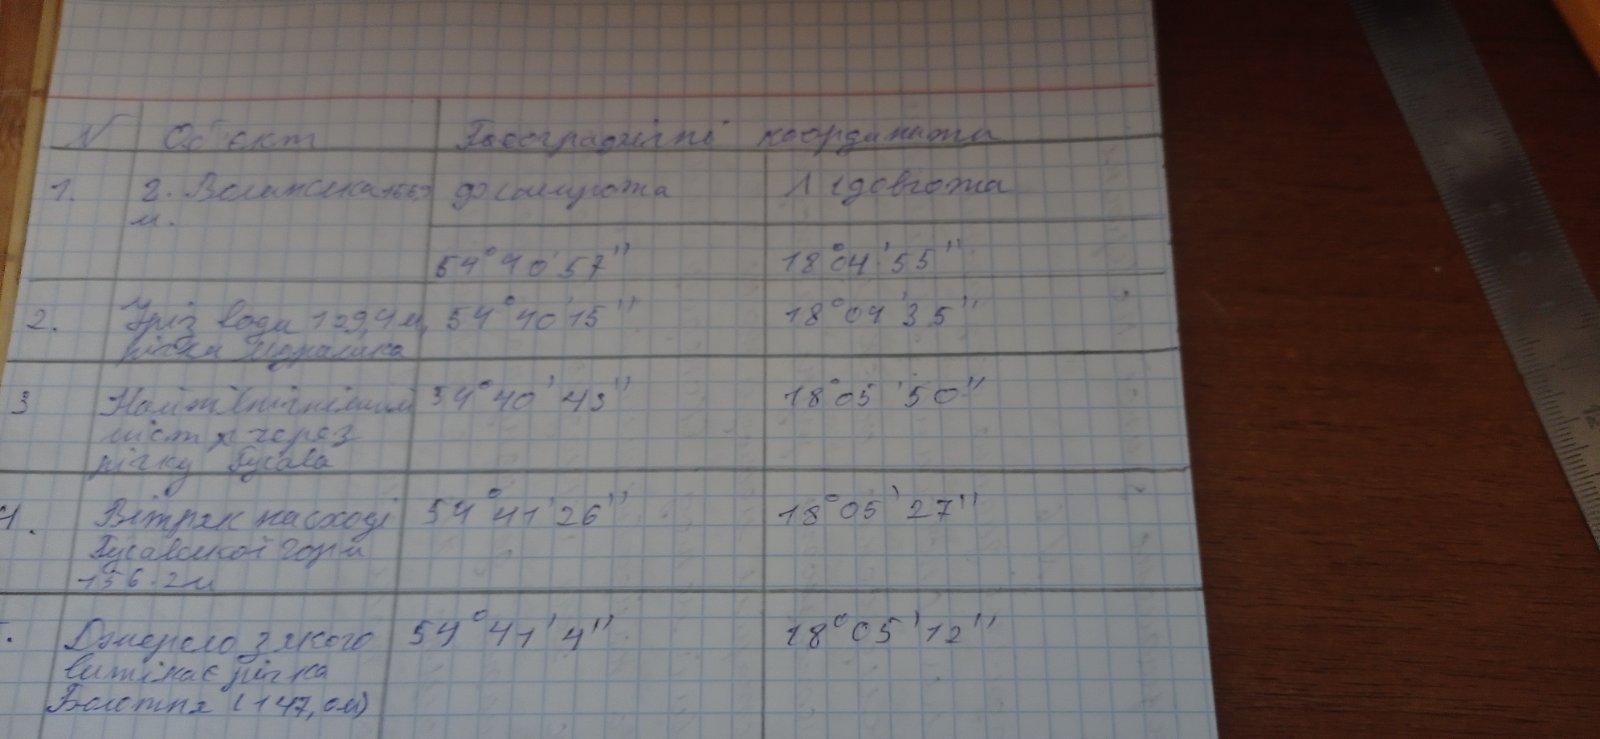 N Об'єкт Географічні координати
1. г. Воланська 166,9 φ широта λ довгота
м.
54° 40' 57" 18° 04' 55"
2. Уріз води 129,4 м, 54° 40' 15" 18° 04' 35"
річка
3 54° 40' 43" 18° 05' 50"
міст через
річку Гусава
4. Вітряк на сході 54° 41' 26" 18° 05' 27"
Гусавської гори
156.2м
5. Джерело з якого 54° 41' 4" 18° 05' 12"
витікає річка
Болотна (147,0м)